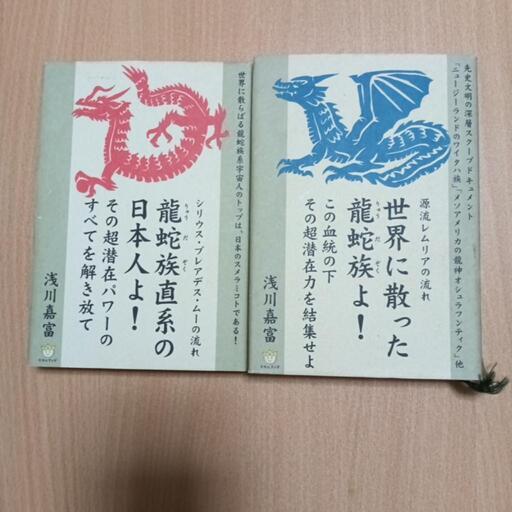 世界に散らばる龍蛇族系宇宙人のトップは、日本のスメラミコトである!
シリウス・プレアデス・ムーの流れ
龍蛇族直系の
りゅう だ ぞく
日本人よ!
その超潜在パワーの
すべてを解き放て
浅川嘉富
先史文明の深層スクープドキュメント
「ニュージーランドのワイタハ族」「メソアメリカの龍神オシュラフンティク」他
源流レムリアの流れ
世界に散った
龍蛇族よ!
りゅう だ ぞく
この血統の下
その超潜在力を結集せよ
浅川嘉富